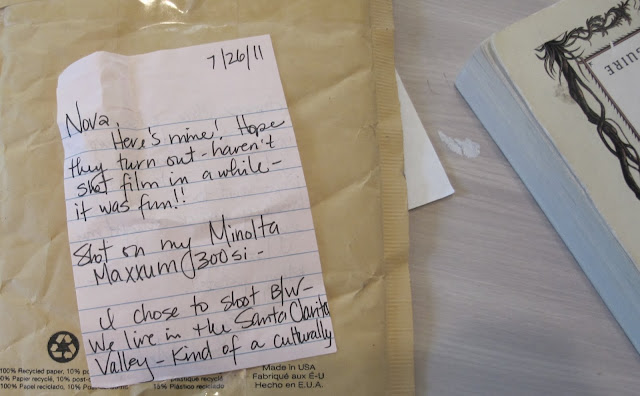 7/26/11
Nova,
Here's mine! Hope
they turn out - haven't
shot film in a while -
it was fun!!
Shot on my Minolta
Maxxum 300si -
I chose to shoot B/W -
We live in the Santa Clarita
Valley - Kind of a culturally
100% Recycled paper, 10% post-
Papier recyclé, 10% post-c
100% Papel reciclado, 10% P
plastique recyclé
15% Plástico reciclado
Made in USA
Fabriqué aux É-U
Hecho en E.U.A.
GUIRE